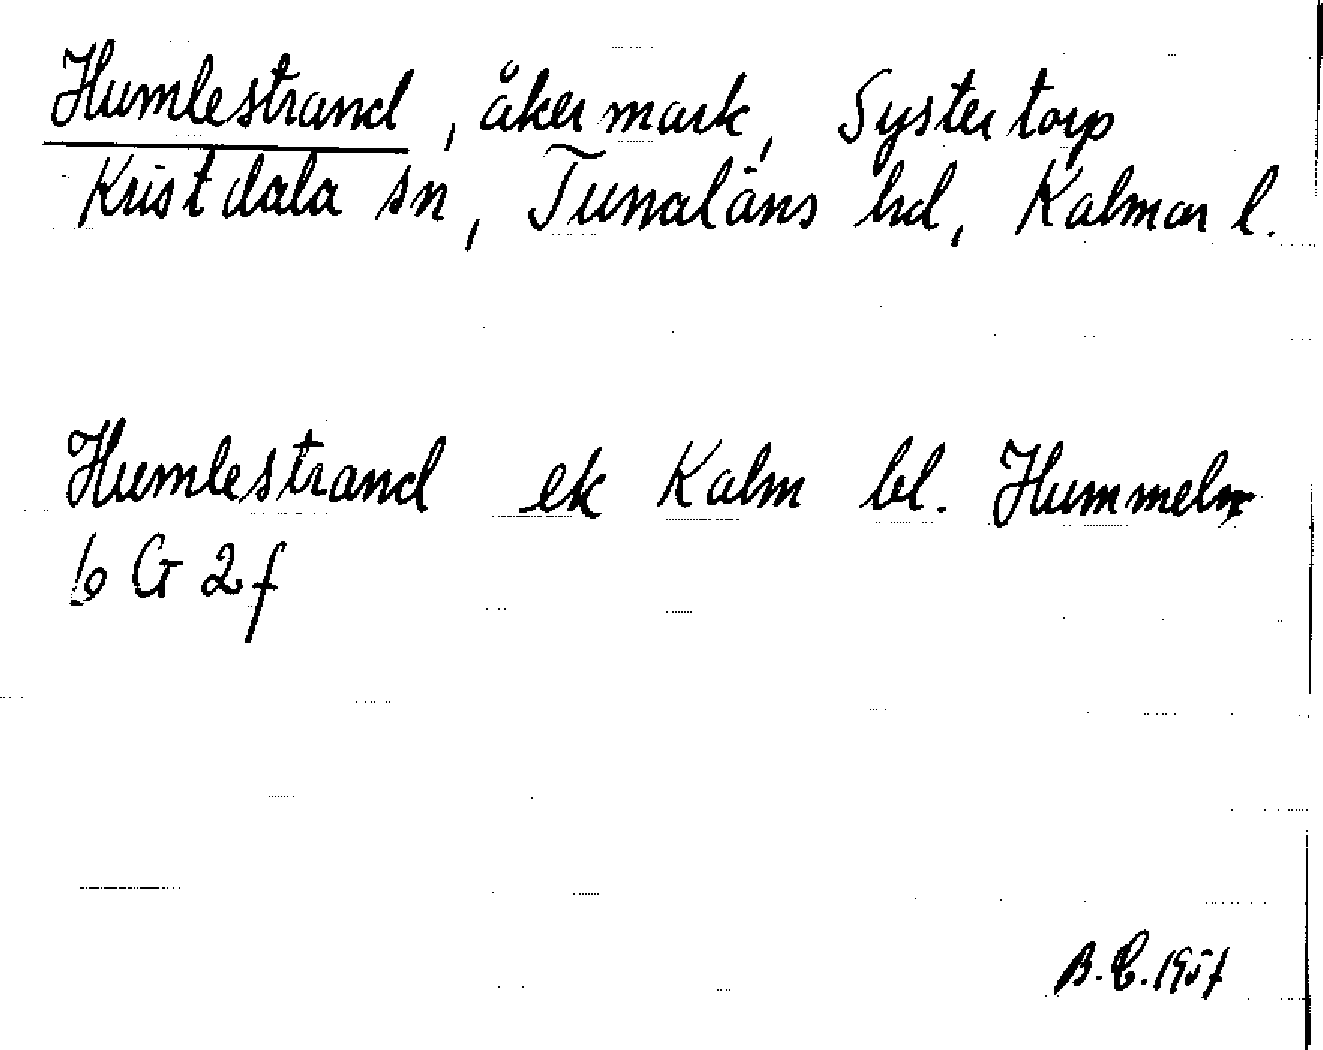 Humlestrand, åkermark, Systertorp
Kristdala sn, Tunaläns hd, Kalmar l.
Humlestrand ek Kalm bl. Hummeln
6 G 2 f
B.E. 1957